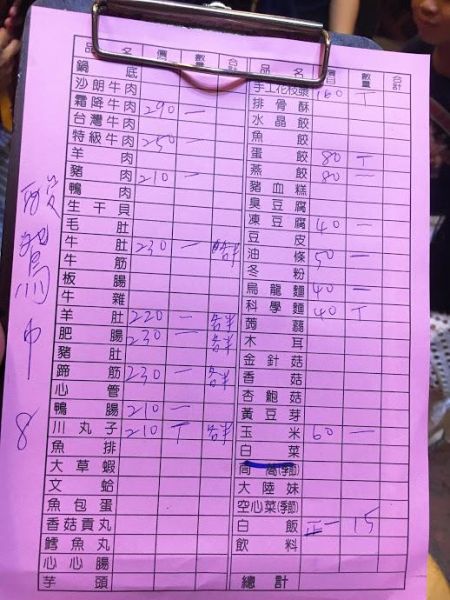 品 名 價 數量 合計
鍋底
沙朗牛肉
霜降牛肉 290 一
台灣牛肉
特級牛肉 250 一
羊肉
豬肉 210 一
鴨肉
生干貝
毛肚
牛肚 230 一
牛筋
板腸
牛雜
羊肚 220 一
肥腸 230 一
豬肚
蹄筋 230 一
心管
鴨腸 210 一
川丸子 210 T
魚排
大草蝦
文蛤
魚包蛋
香菇貢丸
鱈魚丸
心心腸
芋頭
品 名 價 數量 合計
手工花枝漿 160 T
排骨酥
水晶餃
魚餃
蛋餃 80 T
燕餃 80 一
豬血糕
臭豆腐
凍豆腐 40 一
豆皮
油條 50 一
冬粉
烏龍麵 40 一
科學麵 40 T
蒟蒻
木耳
金針菇
香菇
杏鮑菇
黃豆芽
玉米 60 一
白菜
茼蒿(季節)
大陸妹
空心菜(季節)
白飯 正一 15
飲料
總計
鴛
中
8